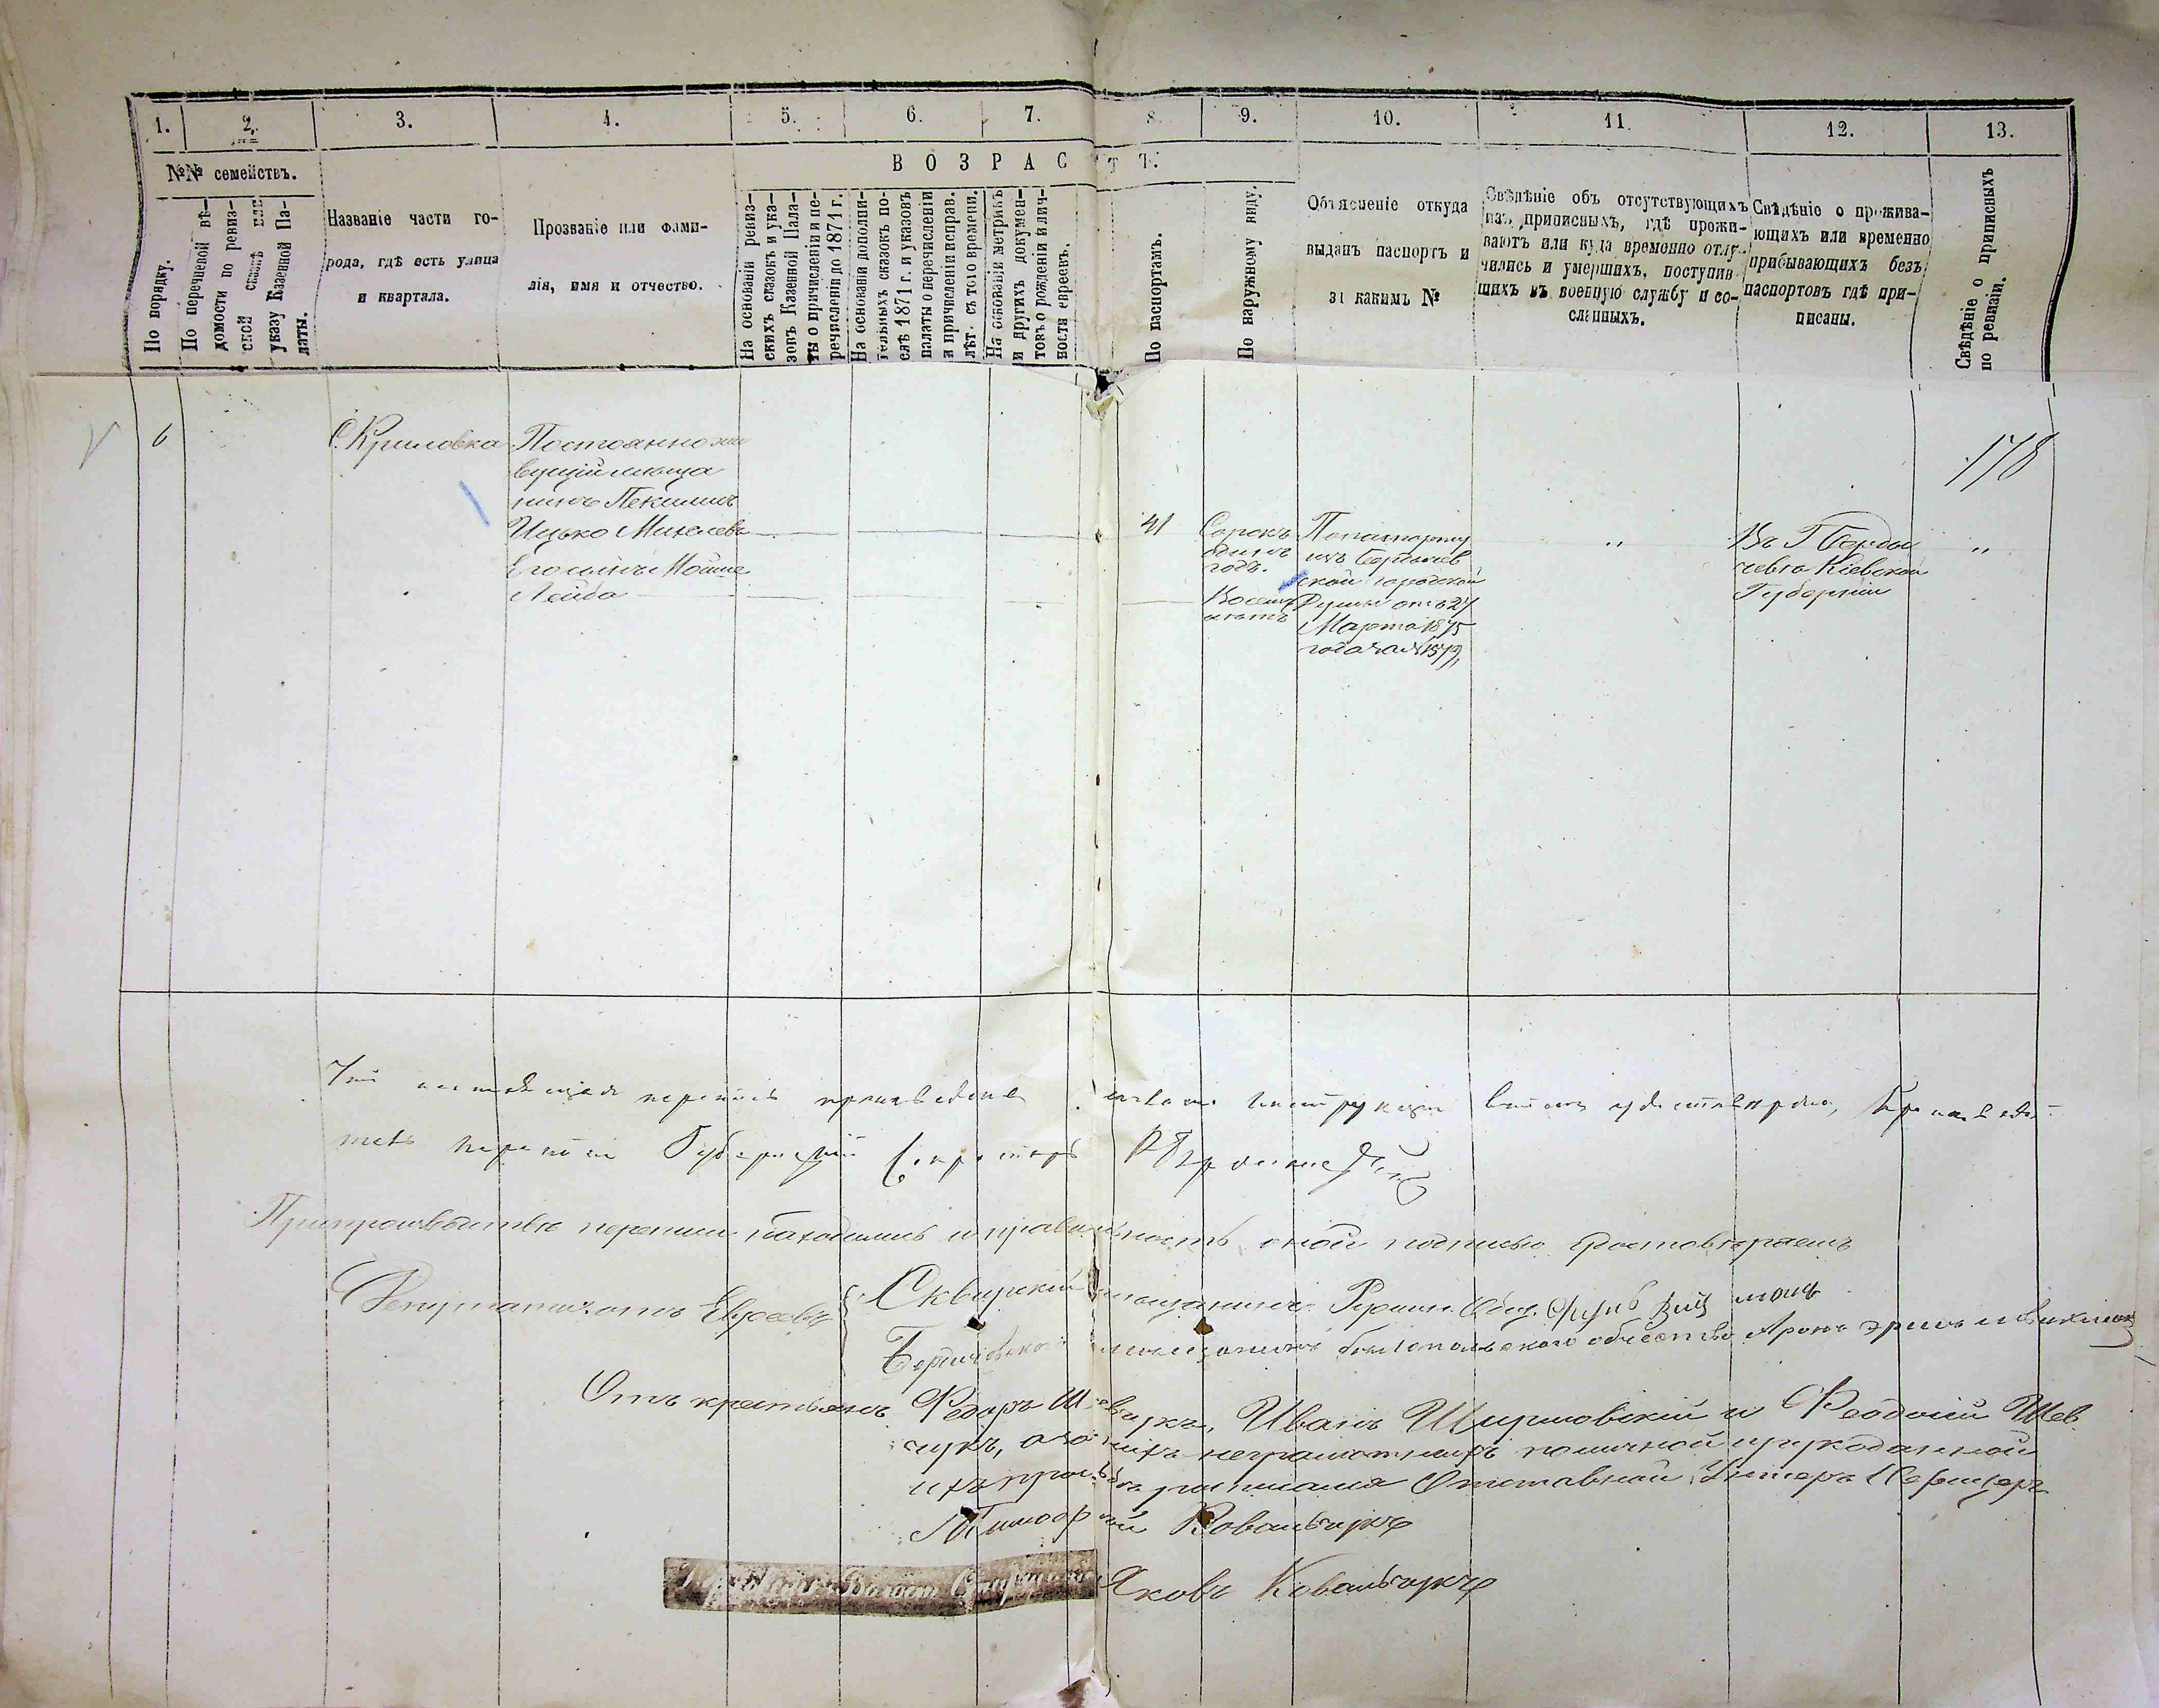 1. 2. 3. 4. 5. 6. 7. 8. 9. 10. 11. 12. 13.
№№ семействъ.
По порядку.
По перечневой вѣ-
домости по ревиз-
ской сказкѣ или
указу Казенной Па-
латы.
Названіе части го-
рода, гдѣ есть улица
и квартала.
Прозваніе или фами-
лія, имя и отчество.
ВОЗРАСТЪ.
На основаніи ревиз-
скихъ сказокъ и ука-
зовъ Казенной Пала-
ты о причисленіи и пе-
речисленіи до 1871 г.
На основаніи дополни-
тельныхъ сказокъ по-
слѣ 1871 г. и указовъ
палаты о перечисленіи
и причисленіи исправ.
лѣт. съ того времени.
На основаніи метрикъ
и другихъ докумен-
товъ о рожденіи и лич-
ности евреевъ.
По паспортамъ.
По наружному виду.
Объясненіе откуда
выданъ паспортъ и
за какимъ №
Свѣдѣніе объ отсутствующихъ
изъ приписныхъ, гдѣ прожи-
ваютъ или куда временно отлу-
чились и умершихъ, поступив-
шихъ въ военную службу и со-
сланныхъ.
Свѣдѣніе о прожива-
ющихъ или временно
прибывающихъ безъ
паспортовъ гдѣ при-
писаны.
Свѣдѣніе о приписныхъ
по ревизіи.
6
С. Криловка
Постоянно жи
вущій мѣща
нинъ
Ицько
Его сынъ Мойше
Лейба
41
Сорокъ
одинъ
годъ.
Восемь
лѣтъ
По паспорту
изъ
ской городской
Думы отъ 27
Марта 1875
года за № 1579
"
Въ Г Берди
чевѣ Кіевской
Губерніи
"
178
настоящая перепись произведена инструкціи удостовѣряю,
Губернскій Секретарь
При производствѣ переписи находились и правильность оной подписью удостовѣряемъ
Депутаты отъ Евреевъ
Сквирскій мѣщанинъ
Бердичевскій мѣщанинъ общества Аронъ
Отъ крестьянъ Федоръ Шевчукъ, Иванъ и Феодосій Шев
чукъ, а за ихъ неграмотныхъ по личной и рукоданной
ихъ просьбѣ росписался Отставной Унтеръ Офицеръ
Тимофѣй Ковальчукъ
Яковъ Ковальчукъ